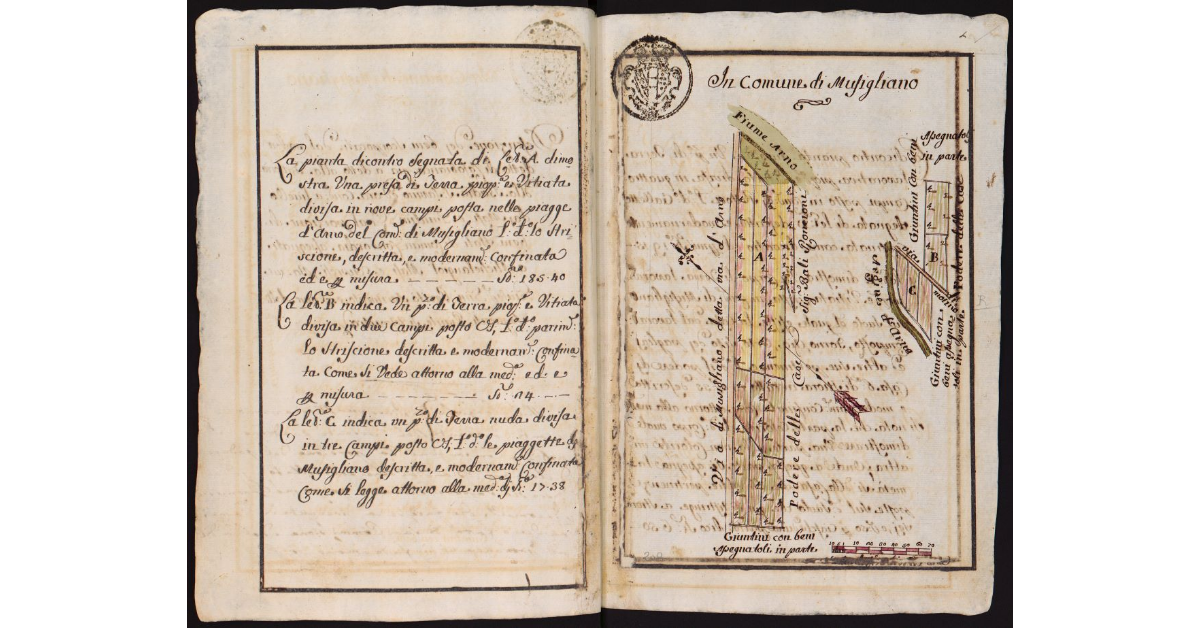 La pianta dicontro segnata di Let.ª A. dimo
stra Una presa di Terra piop.ª e Vitiata
divisa in nove campi posta nelle piagge
d'Arno del Com.e di Musigliano l.º d.º lo Stri=
scione, descritta, e modernam.e Confinata
ed e misura — — — — — S.ra 185-40
La let.ª B indica Un p.º di Terra piop.ª e Vitiata
divisa in due Campi posto C.S, l.º d.º parim.e
Lo Striscione descritta e modernam.e Confina=
ta Come si Vede attorno alla med.ª ed e
misura — — — — — S.ra 114 — —
La let.ª C indica un p.º di Terra nuda divisa
in tre Campi posto C.S, l.º d.º le piaggette di
Musigliano descritta, e modernam.e Confinata
Come si legge attorno alla med.ª di S.ra 17-38
In Comune di Musigliano
Fiume Arno
Via di Musigliano, detta via d'Arno
A
Sig.re Balì Ronçioni
Podere delle Case
Giuntini con beni
Spegnatoli in parte
Spegnatoli
in parte
Giuntini con beni
B
Podere delle Case
via
C
Giuntini con
beni spegna
toli in parte
10 20 30 40 50 60 70